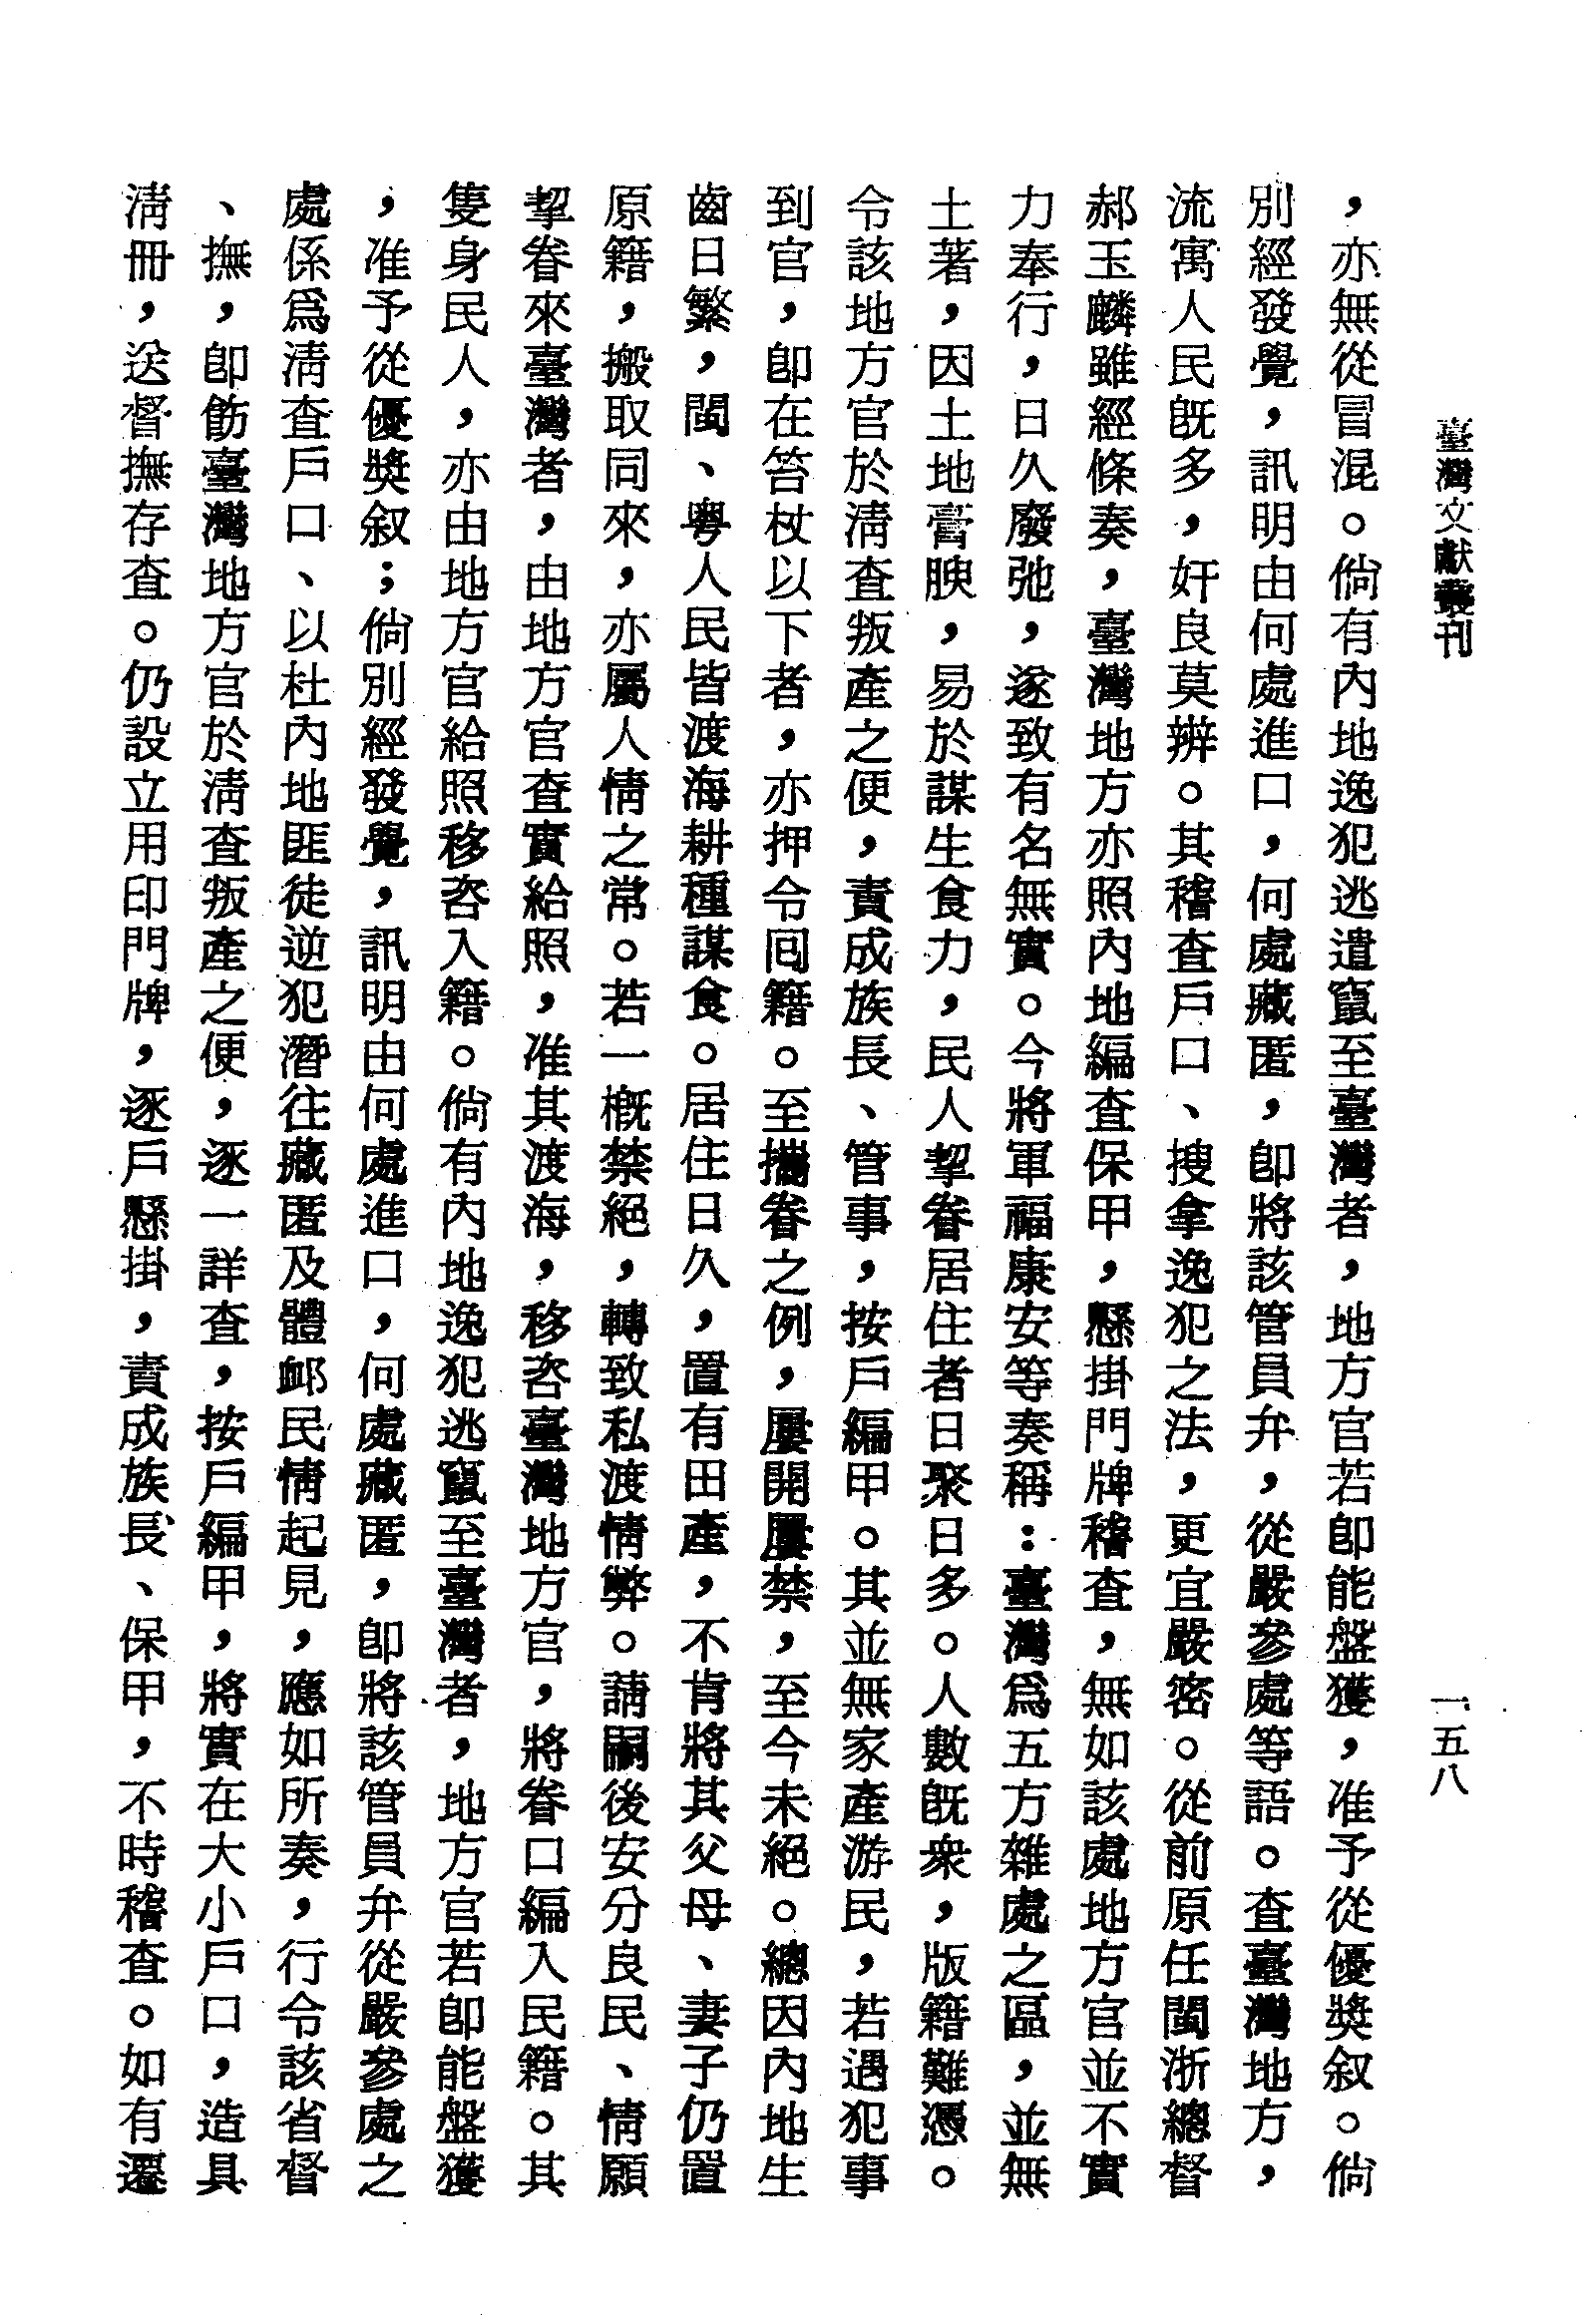 臺灣文獻叢刊
一五八
，亦無從冒混。倘有內地逸犯逃遣竄至臺灣者，地方官若卽能盤獲，准予從優獎叙。倘
別經發覺，訊明由何處進口，何處藏匿，卽將該管員弁，從嚴參處等語。查臺灣地方，
流寓人民旣多，奸良莫辨。其稽查戶口、搜拿逸犯之法，更宜嚴密。從前原任閩浙總督
郝玉麟雖經條奏，臺灣地方亦照內地編查保甲，懸掛門牌稽查，無如該處地方官並不實
力奉行，日久廢弛，遂致有名無實。今將軍福康安等奏稱：臺灣爲五方雜處之區，並無
土著，因土地膏腴，易於謀生食力，民人挈眷居住者日聚日多。人數旣衆，版籍難憑。
令該地方官於淸查叛產之便，責成族長、管事，按戶編甲。其並無家產游民，若遇犯事
到官，卽在笞杖以下者，亦押令囘籍。至攜眷之例，屢開屢禁，至今未絕。總因內地生
齒日繁，閩、粵人民皆渡海耕種謀食。居住日久，置有田產，不肯將其父母、妻子仍置
原籍，搬取同來，亦屬人情之常。若一槪禁絕，轉致私渡情弊。請嗣後安分良民、情願
挈眷來臺灣者，由地方官查實給照，准其渡海，移咨臺灣地方官，將眷口編入民籍。其
隻身民人，亦由地方官給照移咨入籍。倘有內地逸犯逃竄至臺灣者，地方官若卽能盤獲
，准予從優獎叙；倘別經發覺，訊明由何處進口，何處藏匿，卽將該管員弁從嚴參處之
處係爲淸查戶口、以杜內地匪徒逆犯潛往藏匿及體卹民情起見，應如所奏，行令該省督
、撫，卽飭臺灣地方官於淸查叛產之便，逐一詳查，按戶編甲，將實在大小戶口，造具
淸冊，送督撫存查。仍設立用印門牌，逐戶懸掛，責成族長、保甲，不時稽查。如有遷